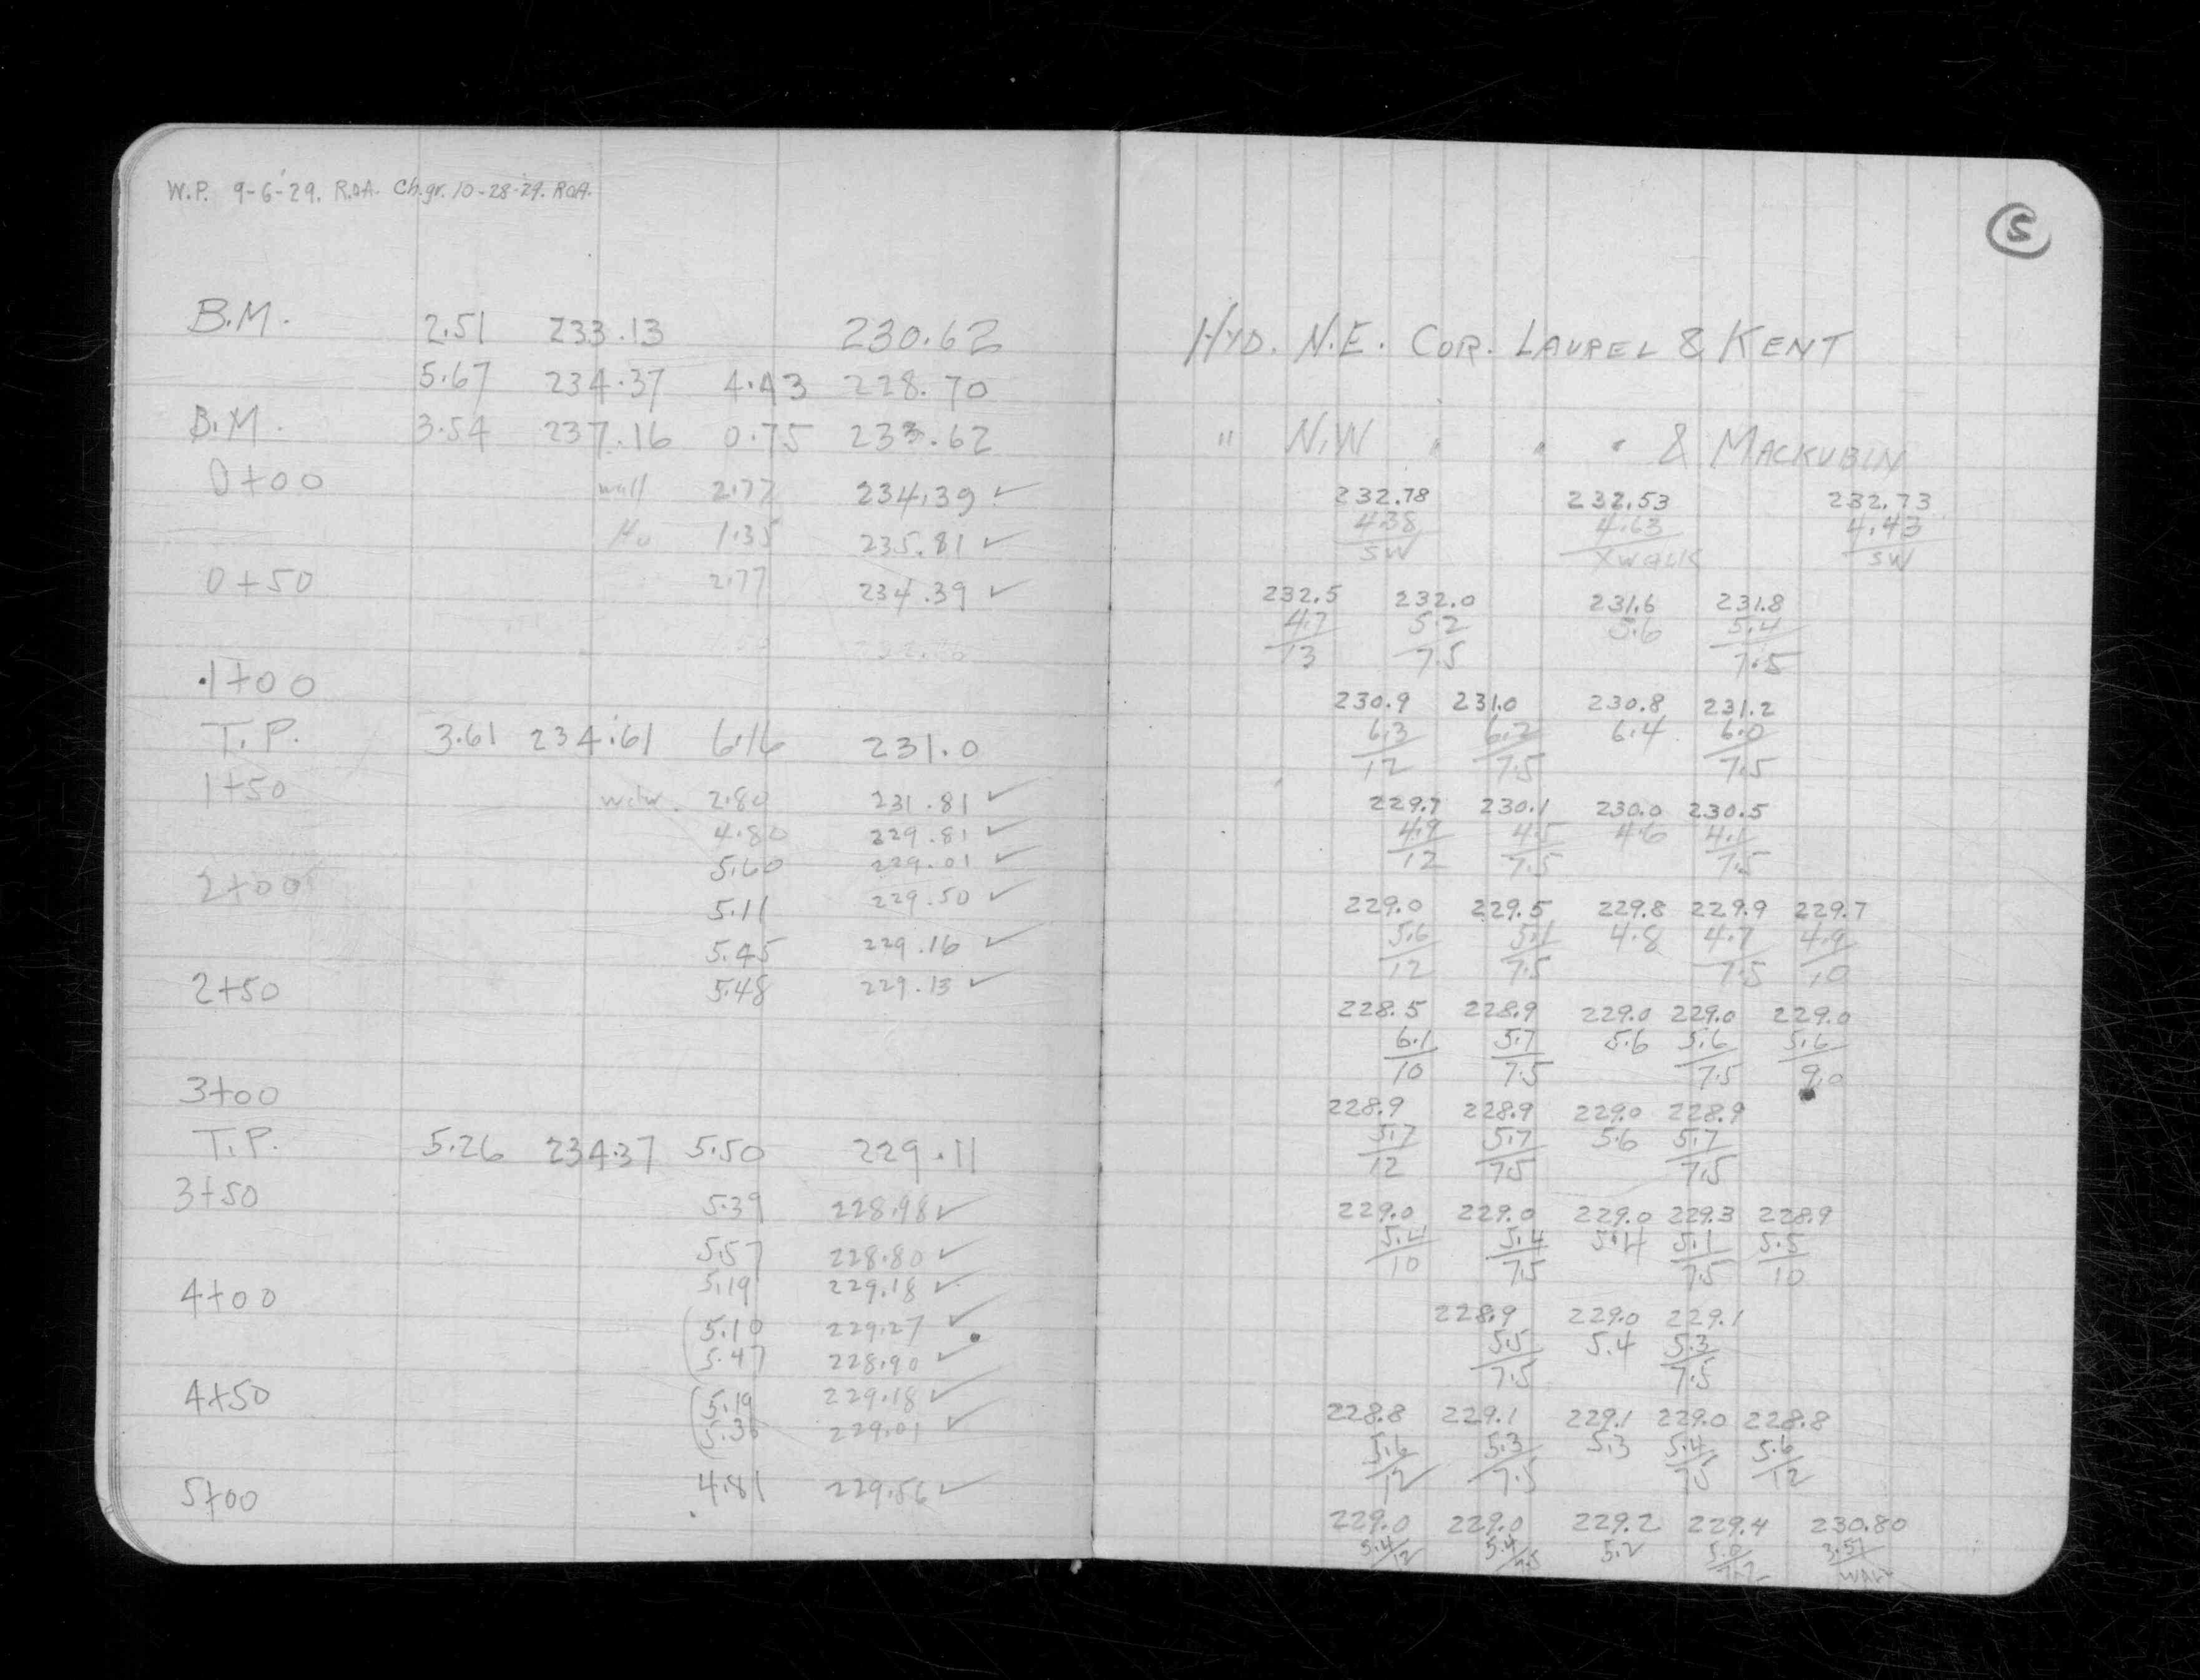 W.P. 9-6-'29. R.O.A. Ch.gr. 10-28-29. ROA.
B.M. 2.51 233.13 230.62
5.67 234.37 4.43 228.70
B.M. 3.54 237.16 0.75 233.62
0+00 wall 2.77 234.39 ✓
1.35 235.81 ✓
0+50 2.77 234.39 ✓
1+00
T.P. 3.61 234.61 6.16 231.0
1+50 wdw. 2.80 231.81 ✓
4.80 229.81 ✓
5.60 229.01 ✓
2+00 5.11 229.50 ✓
5.45 229.16 ✓
2+50 5.48 229.13 ✓
3+00
T.P. 5.26 234.37 5.50 229.11
3+50 5.39 228.98 ✓
5.57 228.80 ✓
4+00 5.19 229.18 ✓
5.10 229.27 ✓
5.47 228.90 ✓
4+50 5.19 229.18 ✓
5.36 229.01 ✓
5+00 4.81 229.56 ✓
5
HYD. N.E. COR. LAUREL & KENT
" N.W " " " & MACKUBIN
232.78 232.53 232.73
4.38 4.63 4.43
SW Xwalk SW
232.5 232.0 231.6 231.8
4.7 5.2 5.6 5.4
13 7.5 7.5
230.9 231.0 230.8 231.2
6.3 6.2 6.4 6.0
12 7.5 7.5
229.7 230.1 230.0 230.5
4.9 4.5 4.6 4.1
12 7.5 7.5
229.0 229.5 229.8 229.9 229.7
5.6 5.1 4.8 4.7 4.9
12 7.5 7.5 10
228.5 228.9 229.0 229.0 229.0
6.1 5.7 5.6 5.6 5.6
10 7.5 7.5 9.0
228.9 228.9 229.0 228.9
5.7 5.7 5.6 5.7
12 7.5 7.5
229.0 229.0 229.0 229.3 228.9
5.4 5.4 5.4 5.1 5.5
10 7.5 7.5 10
228.9 229.0 229.1
5.5 5.4 5.3
7.5 7.5
228.8 229.1 229.1 229.0 228.8
5.6 5.3 5.3 5.4 5.6
12 7.5 7.5 12
229.0 229.0 229.2 229.4 230.80
5.4 5.4 5.2 5.0 3.57
12 7.5 7.2 walk